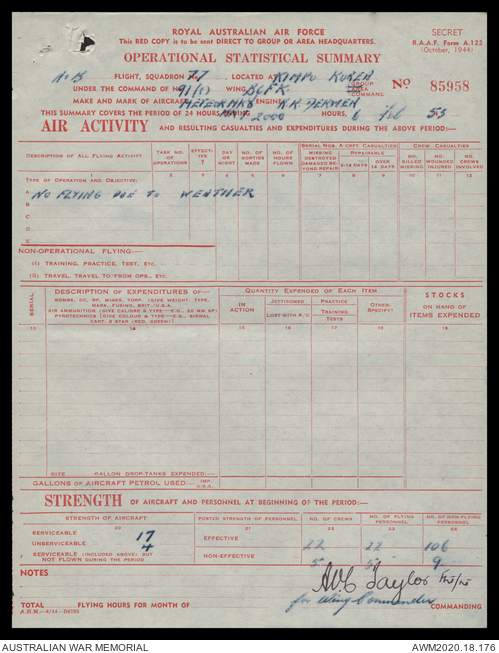 ROYAL AUSTRALIAN AIR FORCE
This RED COPY is to be sent DIRECT TO GROUP OR AREA HEADQUARTERS.
SECRET
R.A.A.F. Form A.123
(October, 1944)
OPERATIONAL STATISTICAL SUMMARY
FLIGHT, SQUADRON 77, LOCATED AT KIMPO KOREA
UNDER THE COMMAND OF No 91(C) WING, BCFK GROUP AREA COMMAND. No 85958
MAKE AND MARK OF AIRCRAFT METEOR MK8 ENGINE R.R. DERWENT
THIS SUMMARY COVERS THE PERIOD OF 24 HOURS, 2000 HOURS, 6 FEB 53
AIR ACTIVITY AND RESULTING CASUALTIES AND EXPENDITURES DURING THE ABOVE PERIOD:—
DESCRIPTION OF ALL FLYING ACTIVITY
TASK NO. OF OPERATIONS
EFFECTIVE ?
DAY OR NIGHT
NO. OF SORTIES MADE
NO. OF HOURS FLOWN
SERIAL NOS. A'CRFT CASUALTIES
MISSING DESTROYED DAMAGED BEYOND REPAIR
REPAIRABLE
2-14 DAYS
OVER 14 DAYS
CREW CASUALTIES
NO. KILLED MISSING
NO. WOUNDED INJURED
NO. CREWS INVOLVED
1 2 3 4 5 6 7 8 9 10 11 12
TYPE OF OPERATION AND OBJECTIVE:
A NO FLYING DUE TO WEATHER
B
C
D
E
NON-OPERATIONAL FLYING:—
(I) TRAINING, PRACTICE, TEST, ETC.
(II) TRAVEL, TRAVEL TO/FROM OPS., ETC.
SERIAL
DESCRIPTION OF EXPENDITURES OF—
BOMBS, DC, RP, MINES, TORP. (GIVE WEIGHT, TYPE, MARK, FUZING, BRIT./U.S.A.
AIR AMMUNITION (GIVE CALIBRE & TYPE—E.G., 20 MM AP)
PYROTECHNICS (GIVE COLOUR & TYPE—E.G., SIGNAL CART. 2 STAR (RED, GREEN))
QUANTITY EXPENDED OF EACH ITEM
IN ACTION
JETTISONED
LOST WITH A/C
PRACTICE
TRAINING
TESTS
OTHER: SPECIFY:
STOCKS ON HAND OF ITEMS EXPENDED
13 14 15 16 17 18 19
SIZE GALLON DROP-TANKS EXPENDED:—
GALLONS OF AIRCRAFT PETROL USED:— IMP. U.S.A.
STRENGTH OF AIRCRAFT AND PERSONNEL AT BEGINNING OF THE PERIOD:—
STRENGTH OF AIRCRAFT
POSTED STRENGTH OF PERSONNEL
NO. OF CREWS
NO. OF FLYING PERSONNEL
NO. OF NON-FLYING PERSONNEL
20 21 22 23 24
SERVICEABLE 17
EFFECTIVE 22 22 106
UNSERVICEABLE 4
SERVICEABLE (INCLUDED ABOVE) BUT NOT FLOWN DURING THE PERIOD
NON-EFFECTIVE 5 5 9
NOTES
Taylor
for Wing Commander COMMANDING
TOTAL FLYING HOURS FOR MONTH OF
AUSTRALIAN WAR MEMORIAL
AWM2020.18.176